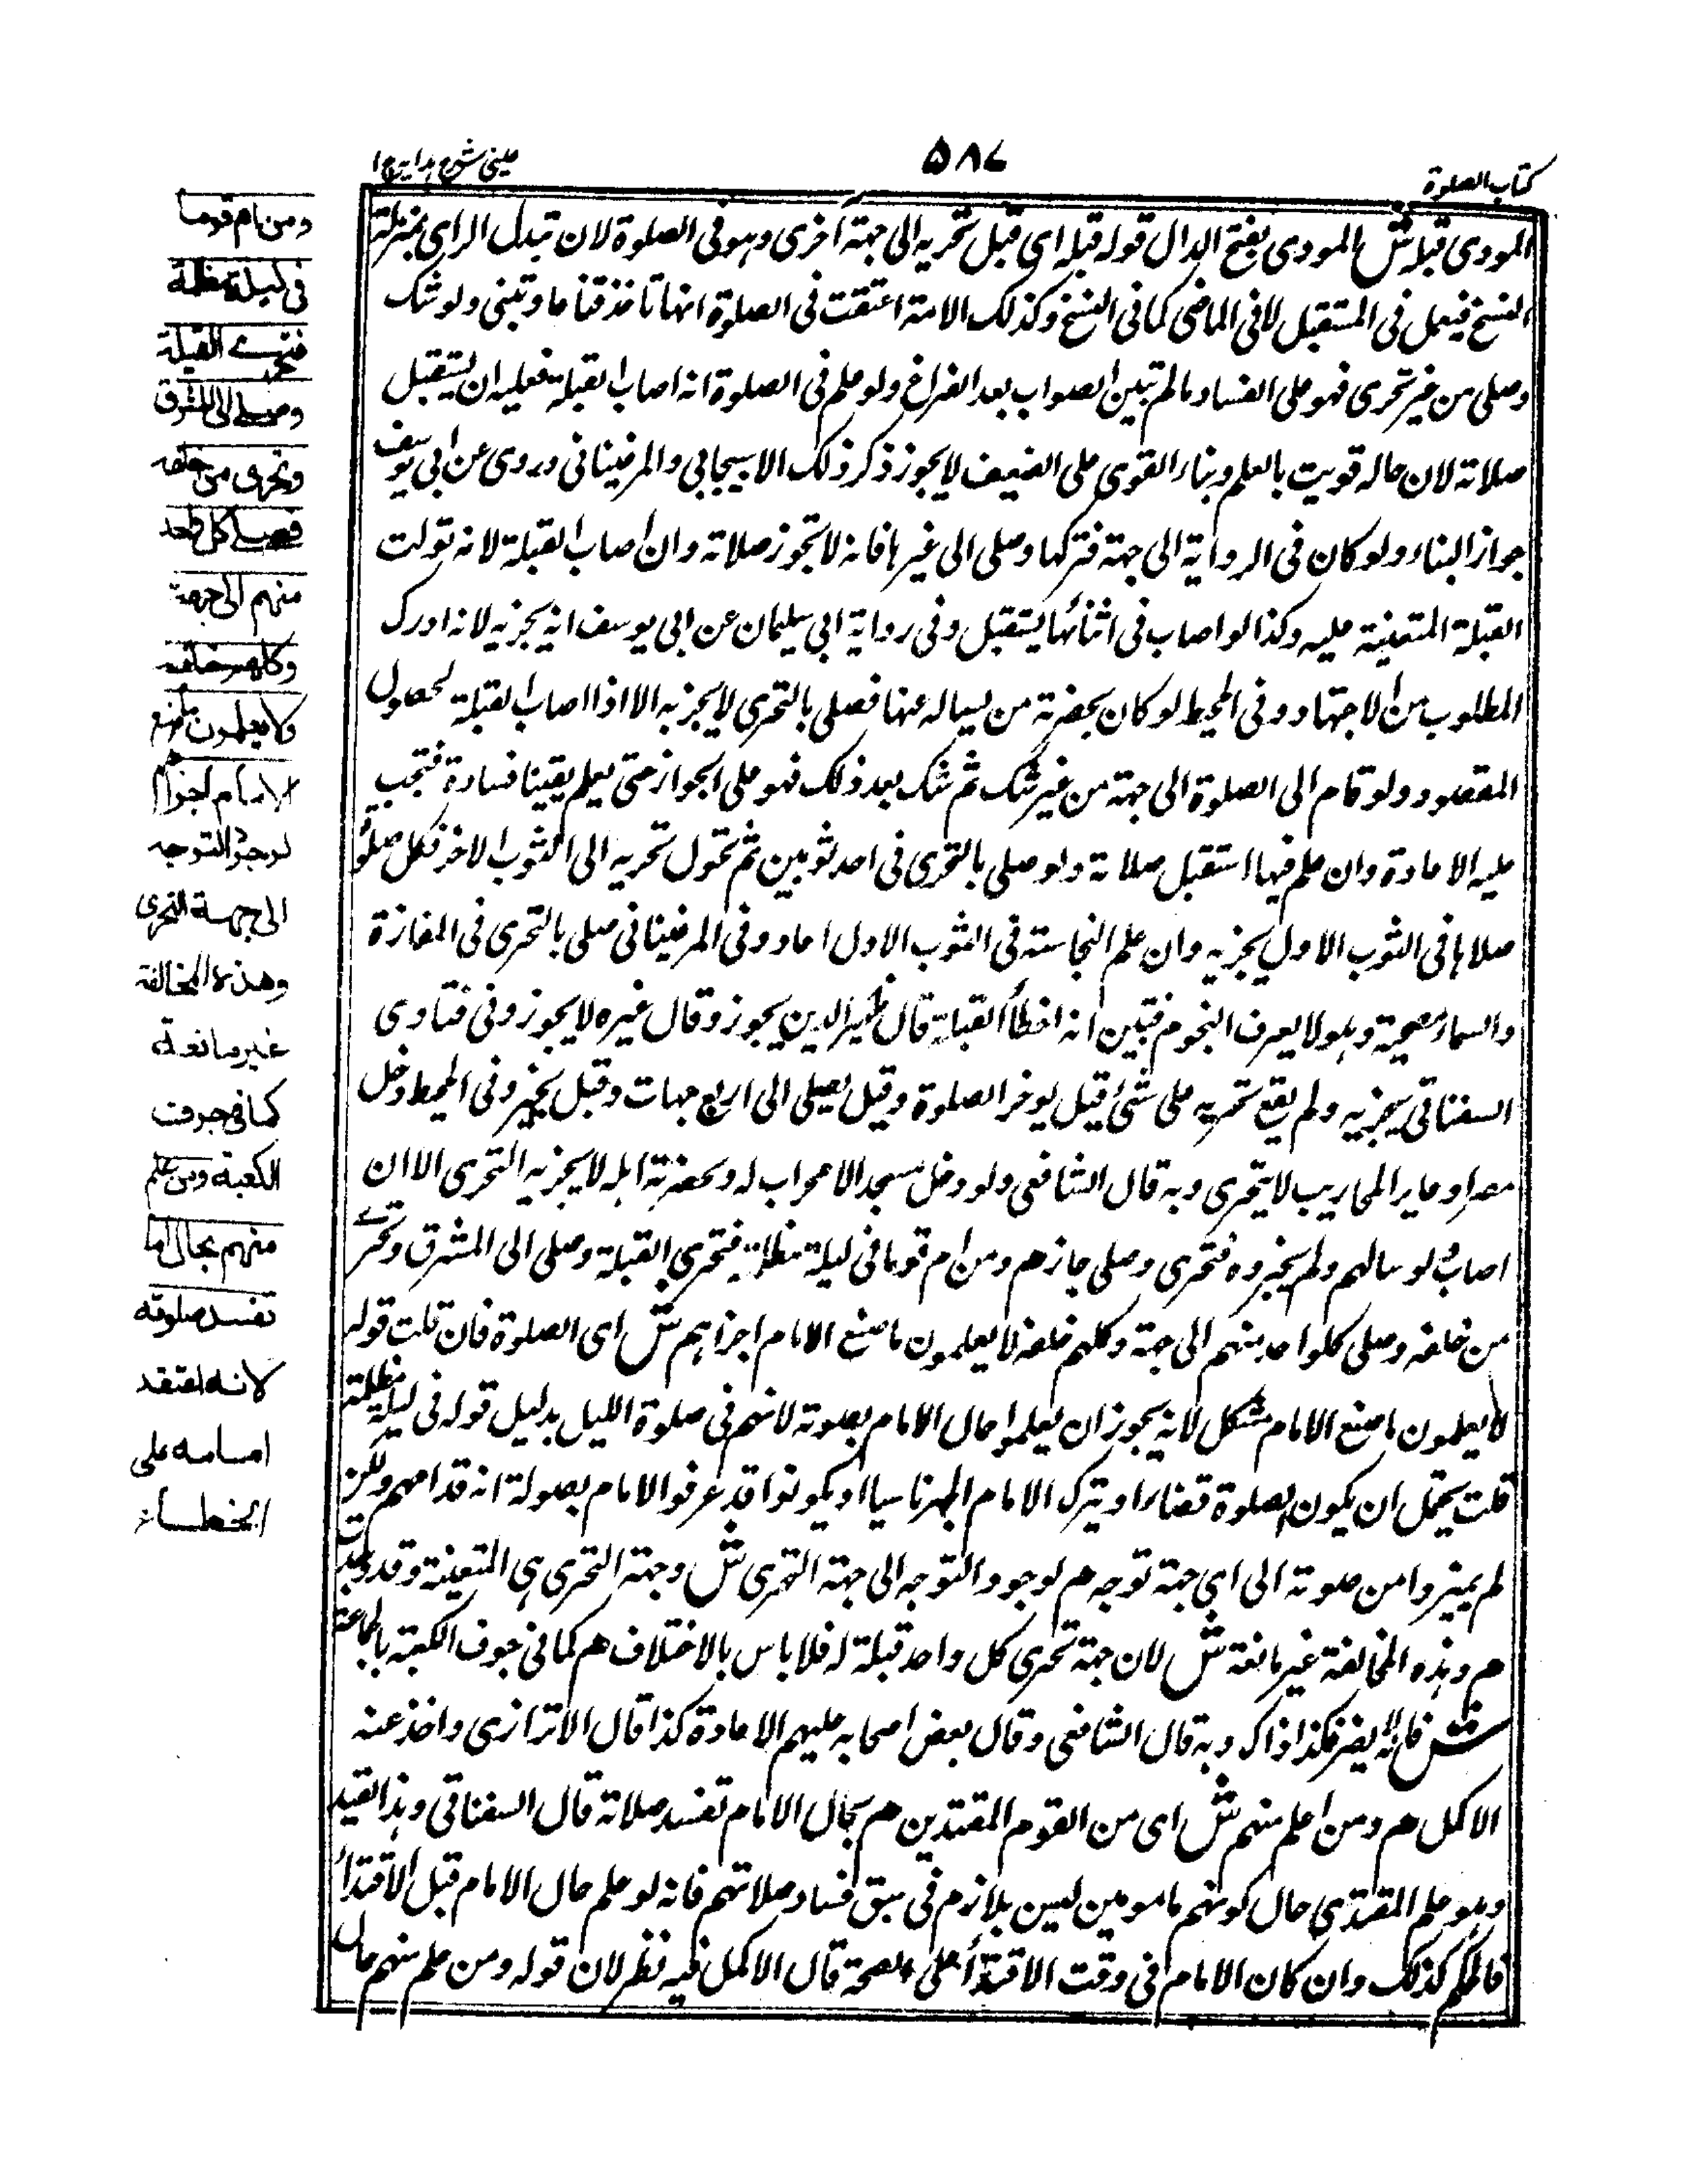 كتاب الصلوة
٥٨٧
عينى شرح هدايه ج ١
المودى قبله ش المودى بفتح الدال قوله قبله اى قبل تحريه الى جهة اخرى وهو فى الصلوة لان تبدل الراى بمنزلة
النسخ فيعمل فى المستقبل لا فى الماضى كما فى النسخ وكذلك الامة اعتقت فى الصلوة انها تاخذ قناعا وتبنى ولو شك
وصلى من غير تحرى فهو على الفساد مالم تبين الصواب بعد الفراغ ولو علم فى الصلوة انه اصاب القبلة فعليه ان يستقبل
صلاته لان حاله قويت بالعلم وبناء القوى على الضعيف لا يجوز ذكر ذلك الاسبيجابى والمرغينانى وروى عن ابى يوسف
جواز البناء ولو كان فى الرواية الى جهة فتركها وصلى الى غيرها فانه لا تجوز صلاته وان اصاب القبلة لانه تولت
القبلة المتعينة عليه وكذا لو اصاب فى اثنائها يستقبل وفى رواية ابى سليمان عن ابى يوسف انه يجزيه لانه ادرك
المطلوب من الاجتهاد وفى المحيط لو كان بحضرته من يساله عنها فصلى بالتحرى لا يجزيه الا اذا اصاب القبلة لحصول
المقصود ولو قام الى الصلوة الى جهة من غير شك ثم شك بعد ذلك فهو على الجواز حتى يعلم يقينا فساده فتجب
عليه الاعادة وان علم فيها استقبل صلاته ولو صلى بالتحرى فى احد ثوبين ثم تحول تحريه الى الثوب الاخر فكل صلوة
صلاها فى الثوب الاول يجزيه وان علم النجاسته فى الثوب الاول اعاد وفى المرغينانى صلى بالتحرى فى المفازة
والسماء مصحية وهو لا يعرف النجوم فتبين انه اخطأ القبلة قال ظهير الدين يجوز وقال غيره لا يجوز وفى فتاوى
السغناقى يجزيه ولم يقع تحريه على شئ قيل يوخر الصلوة وقيل يصلى الى اربع جهات وقيل يخير وفى المحيط دخل
مصرا وعاير المحاريب لا يتحرى وبه قال الشافعى ولو دخل مسجد الا محراب له وبحضرته اهله لا يجزيه التحرى الا ان
اصاب ولو سالهم ولم يخبروه فتحرى وصلى جاز هم ومن ام قوما فى ليلة مظلمة فتحرى القبلة وصلى الى المشرق وتحرى
من خلفه وصلى كلواحد منهم الى جهة وكلهم خلفه لا يعلمون ما صنع الامام اجزاهم ش اى الصلوة فان قلت قوله
لا يعلمون ما صنع الامام مشكل لانه يجوز ان يعلموا حال الامام بصوته لانهم فى صلوة الليل بدليل قوله فى ليلة مظلمة
قلت يحتمل ان يكون الصلوة قضاء او يترك الامام الجهر ناسيا او يكونوا قد عرفوا الامام بصوته انه قدامهم ولكن
لم يميزوا من صوته الى اى جهة توجه هم لوجود التوجه الى جهة التحرى ش وجهة التحرى هى المتعينة وقد وجدت
هم وهذه المخالفة غير مانعة ش لان جهة تحرى كل واحد قبلة له فلا باس بالاختلاف هم كما فى جوف الكعبة بالجماعة
ش فانه لا يضر فكذا ذاك وبه قال الشافعى وقال بعض اصحابه عليهم الاعادة كذا قال الاترازى واخذ عنه
الاكمل هم ومن اعلم منهم ش اى من القوم المقتدين هم بحال الامام تفسد صلاته قال السغناقى وهذا القيد
وهو علم المقتدى حال كونهم مامومين ليس بلازم فى سبق فساد صلاتهم فانه لو علم حال الامام قبل الاقتداء
فالحكم كذلك وان كان الامام فى وقت الاقتداء على الصحة قال الاكمل فيه نظر لان قوله ومن علم منهم حال
ومن ام قوما
فى ليلة مظلمة
فتحرى القبلة
وصلى الى المشرق
وتحرى من خلفه
فصلى كل واحد
منهم الى جهة
وكلهم خلفه
لا يعلمون ما صنع
الامام اجزاهم
لوجود التوجه
الى جهة التحرى
وهذه المخالفة
غير مانعة
كما فى جوف
الكعبة ومن علم
منهم بحال امامه
تفسد صلوته
لانه اعتقد
امامه على
الخطاء